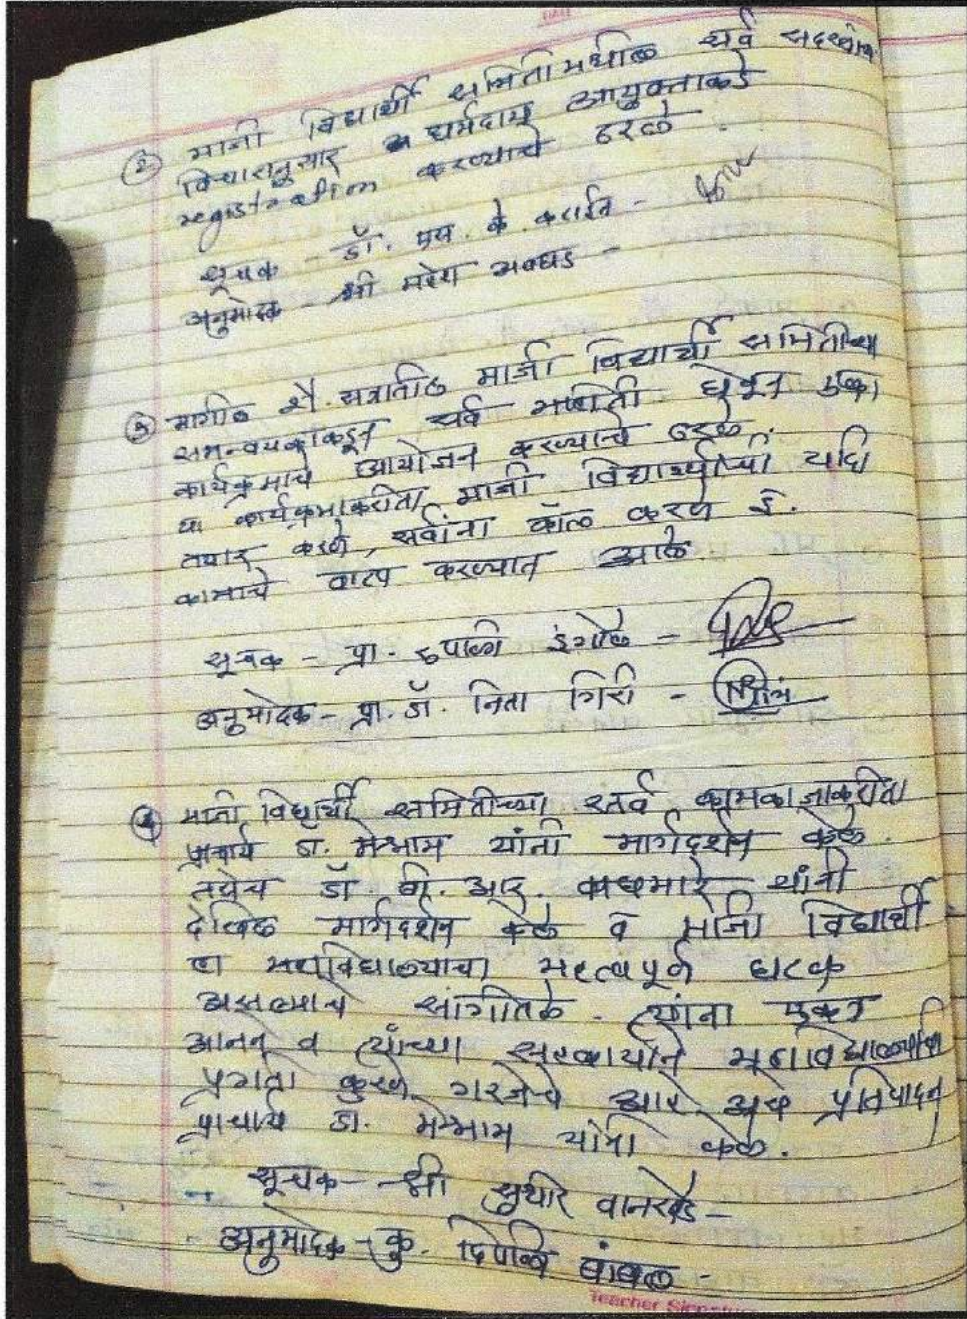 ② माजी विद्यार्थी समितीमधील सर्व सदस्यांच
विचारानुसार धर्मदाय आयुक्ताकडे
registration करण्याचे ठरले.
सूचक - डॉ. एस. के. कराईत -
अनुमोदक - श्री महेश अवघड -
③ मागील शै. सत्रातील माजी विद्यार्थी समितीच्या
समन्वयकाकडून सर्व माहिती घेवून पुढिल
कार्यक्रमाचे आयोजन करण्याचे ठरले.
या कार्यक्रमाकरीता माजी विद्यार्थ्यांची यादि
तयार करणे, सर्वांना कॉल करणे ई.
कामाचे वाटप करण्यात आले.
सूचक - प्रा. रुपाली इंगोले -
अनुमोदक - प्रा. डॉ. निता गिरी -
④ माजी विद्यार्थी समितीच्या सर्व कामकाजाकरीता
प्राचार्य डा. मेश्राम यांनी मार्गदर्शन केले.
तसेच डॉ. व्ही. आर. वाघमारे यांनी
देखिल मार्गदर्शन केले व माजी विद्यार्थी
हा महाविद्यालयाचा महत्वपूर्ण घटक
असल्याचे सांगीतले. त्यांना एकत्र
आनने व त्यांच्या सहकार्याने महाविद्यालयाची
प्रगती करणे गरजेचे आहे असे प्रतिपादन
प्राचार्य डा. मेश्राम यांनी केले.
सूचक - श्री सुधीर वानखडे -
अनुमोदक - कु. दिपाली
Teacher Signature